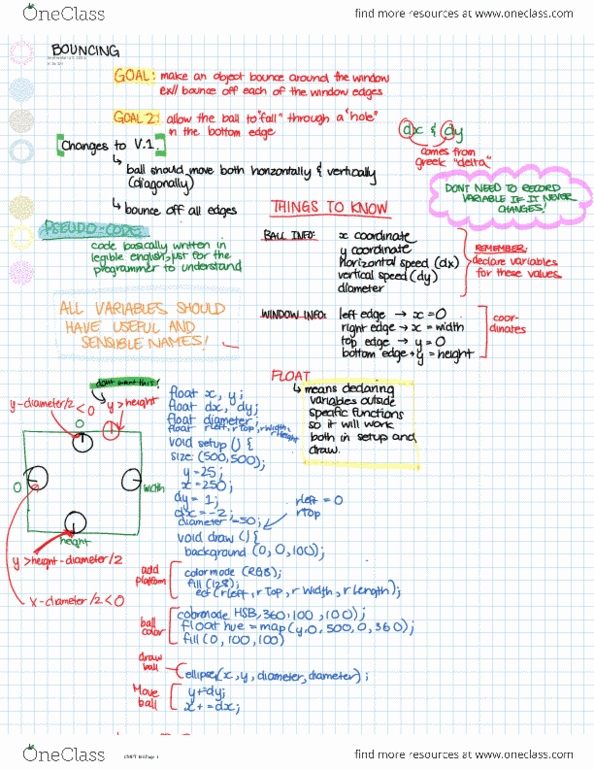 OneClass
find more resources at www.oneclass.com
BOUNCING
GOAL: make an object bounce around the window
ex// bounce off each of the window edges
GOAL 2: allow the ball to "fall" through a "hole"
in the bottom edge
dx & dy
comes from
greek "delta"
[Changes to V.1.]
↳ ball should move both horizontally & vertically
(diagonally)
↳ bounce off all edges
DONT NEED TO RECORD
VARIABLE IF IT NEVER
CHANGES!
THINGS TO KNOW
PSEUDO-CODE
code basically written in
legible english, just for the
programmer to understand
BALL INFO: x coordinate
y coordinate
horizontal speed (dx)
vertical speed (dy)
diameter
REMEMBER:
declare variables
for these values.
ALL VARIABLES SHOULD
HAVE USEFUL AND
SENSIBLE NAMES!
WINDOW INFO: left edge → x = 0
right edge → x = width
top edge → y = 0
bottom edge → y = height
coor-
dinates
FLOAT
↳ means declaring
variables outside
specific functions
so it will work
both in setup and
draw.
dont want this!
y-diameter/2 < 0
y > height
0
0
width
height
y > height-diameter/2
x-diameter/2 < 0
float x, y;
float dx, dy;
float diameter
float rLeft, rTop, rWidth,
rHeight
void setup () {
size: (500,500);
y = 25;
x = 250;
dy = 1;
dx = -2;
diameter = 50;
rleft = 0
rtop
void draw () {
background (0, 0, 100);
add
platform
colormode (RGB);
fill (128);
ect (rleft, r Top, r Width, r Length);
ball
color
colormode HSB, 360, 100, 100);
float hue = map(y, 0, 500, 0, 360);
fill (0, 100, 100)
draw
ball
ellipse(x, y, diameter, diameter);
Move
ball
y += dy;
x += dx;
OneClass
find more resources at www.oneclass.com